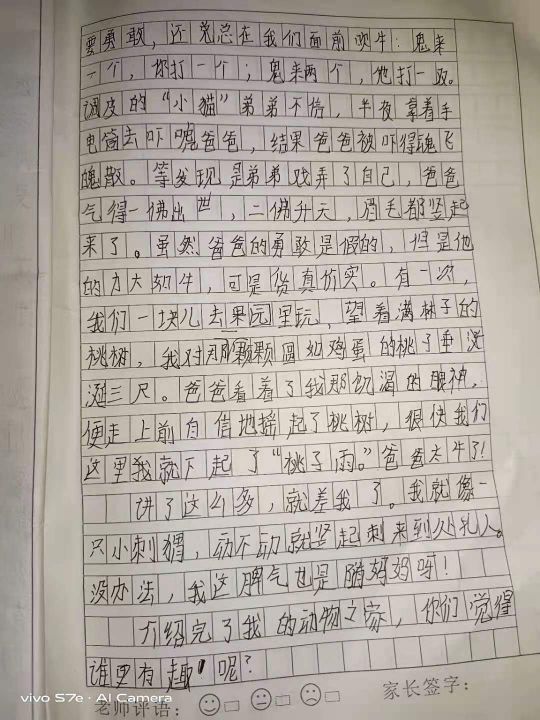 要勇敢，还总总在我们面前吹牛：鬼来
一个，你打一个；鬼来两个，他打一双。
调皮的“小猫”弟弟不信，半夜拿着手
电筒去吓唬爸爸，结果爸爸被吓得魂飞
魄散。等发现是弟弟戏弄了自己，爸爸
气得一佛出世，二佛升天，眉毛都竖起
来了。虽然爸爸的勇敢是假的，但是他
的力大如牛，可是货真价实。有一次，
我们一块儿去果园里玩，望着满林子的
桃树，我对那颗颗圆如鸡蛋的桃子垂涎
涎三尺。爸爸看着了我那饥渴的眼神，
便走上前自信地摇起了桃树，很快我们
这里我就下起了“桃子雨。”爸爸太牛了！
讲了这么多，就差我了。我就像一
只小刺猬，动不动就竖起刺来到处扎人。
没办法，我这脾气也是随妈妈呀！
介绍完了我的动物之家，你们觉得
谁更有趣呢？
老师评语：
家长签字：
vivo S7e · AI Camera